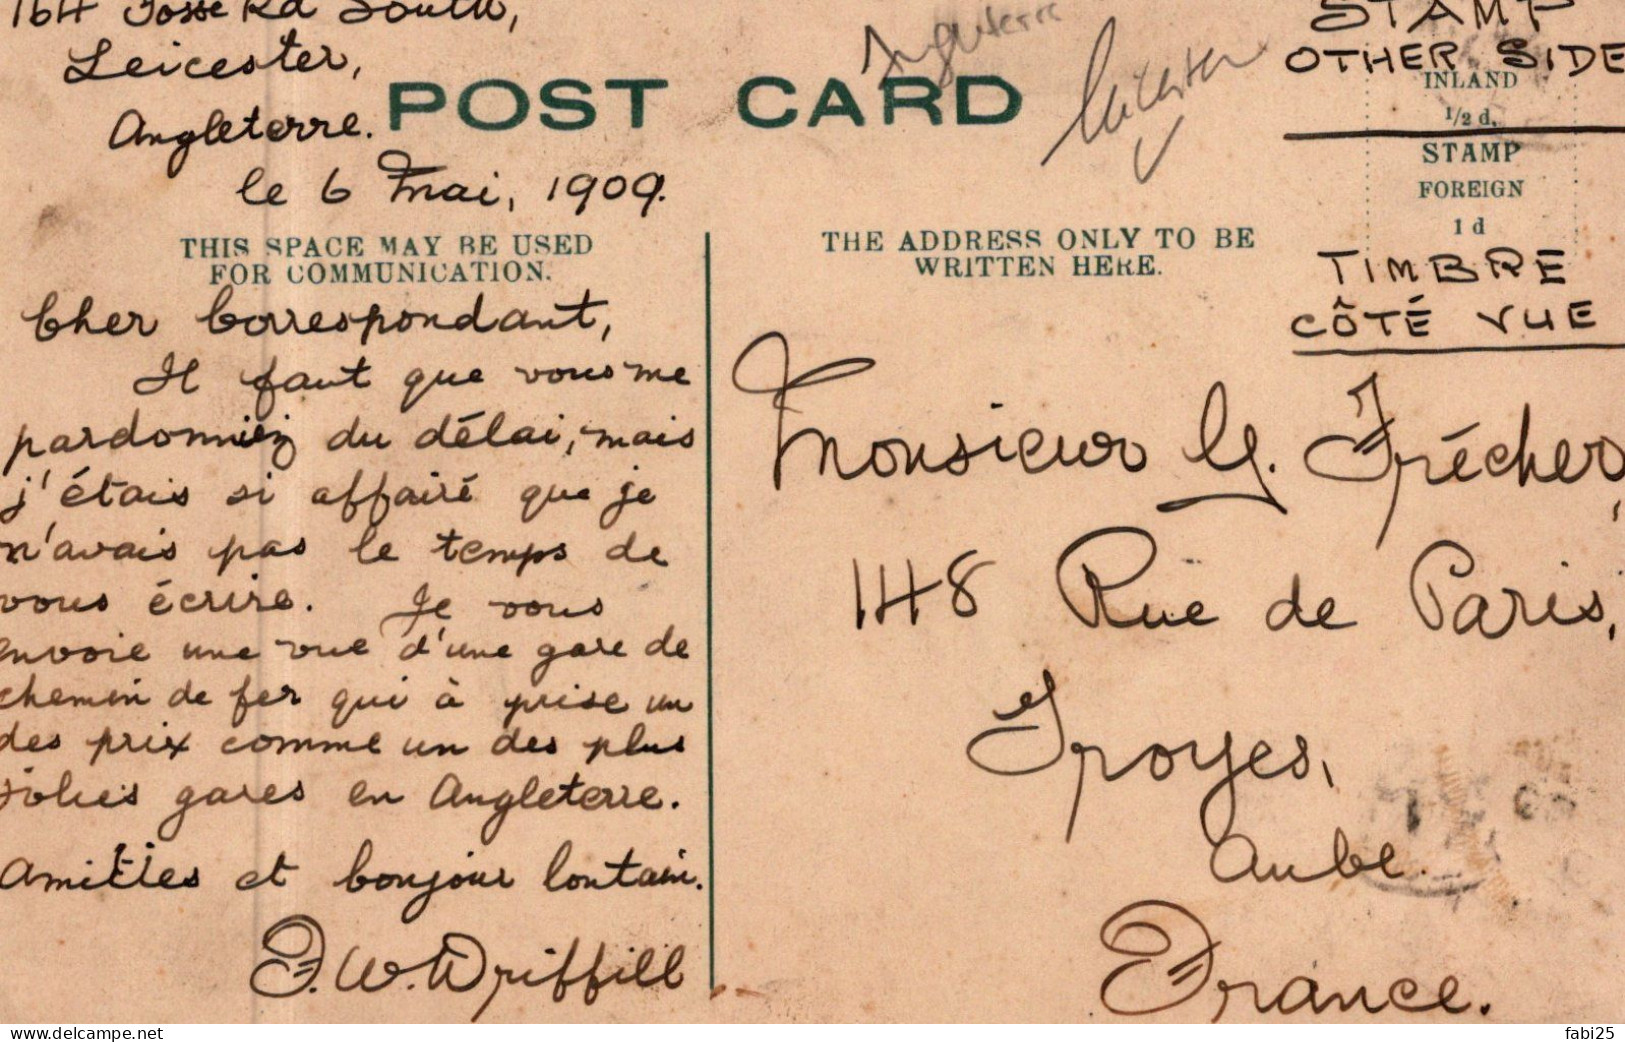 164 Fosse Rd South,
Leicester,
Angleterre.
le 6 Mai, 1909.
POST CARD
Angleterre
Leicester
STAMP
OTHER SIDE
INLAND
1/2 d.
STAMP
FOREIGN
1 d
TIMBRE
CÔTÉ VUE
THIS SPACE MAY BE USED
FOR COMMUNICATION.
THE ADDRESS ONLY TO BE
WRITTEN HERE.
Cher Correspondant,
Il faut que vous me
pardonniez du délai, mais
j'étais si affairé que je
n'avais pas le temps de
vous écrire. Je vous
envoie une vue d'une gare de
chemin de fer qui à prise un
des prix comme un des plus
jolies gares en Angleterre.
Amitiés et bonjour lontain.
F. W. Driffill
Monsieur G. Frécher,
148 Rue de Paris,
Troyes,
Aube.
France.
www.delcampe.net
fabi25